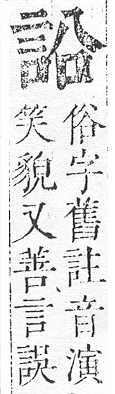 俗字舊註音演
笑貌又善言誤